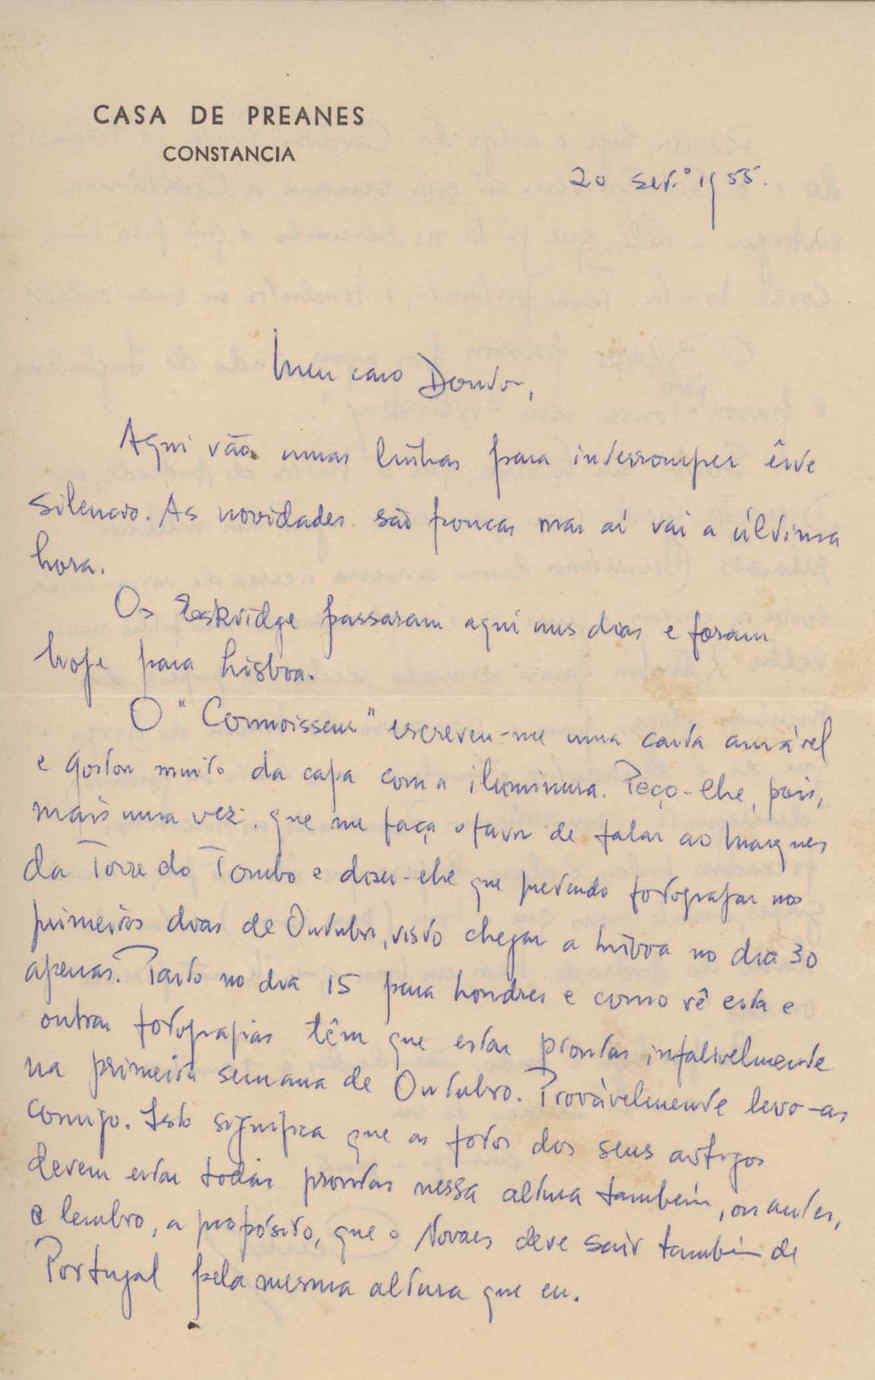 CASA DE PREANES
CONSTANCIA
20 set.º 1955.
Meu caro Doutor,
Aqui vão umas linhas para interromper êste
silencio. As novidades são poucas mas aí vai a última
hora.
Os Eskridge passaram aqui uns dias e foram
hoje para Lisboa.
O "Connoisseur" escreveu-me uma carta amável
e gostou muito da capa com a iluminura. Peço-lhe, pois,
mais uma vez que me faça o favor de falar ao Marques
da Torre do Tombo e dizer-lhe que pretendo fotografar nos
primeiros dias de Outubro, visto chegar a Lisboa no dia 30
apenas. Parto no dia 15 para Londres e como vê esta e
outras fotografias têm que estar prontas infalivelmente
na primeira semana de Outubro. Provàvelmente levo-as
comigo. Isto significa que as fotos dos seus artigos
devem estar todas prontas nessa altura também, ou antes,
e lembro, a propósito, que o Novaes deve sair também de
Portugal pela mesma altura que eu.